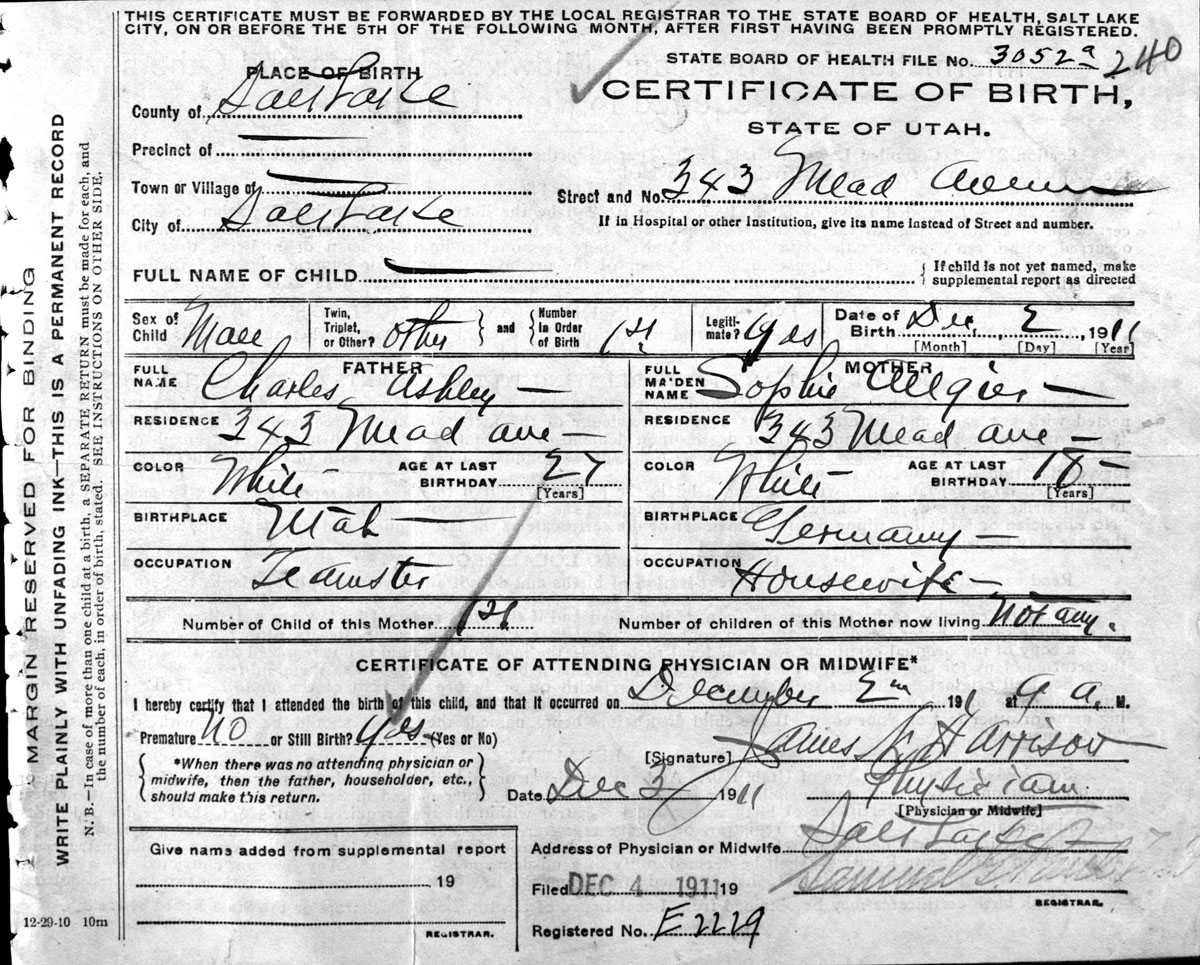 THIS CERTIFICATE MUST BE FORWARDED BY THE LOCAL REGISTRAR TO THE STATE BOARD OF HEALTH, SALT LAKE
CITY, ON OR BEFORE THE 5TH OF THE FOLLOWING MONTH, AFTER FIRST HAVING BEEN PROMPTLY REGISTERED.
STATE BOARD OF HEALTH FILE No. 3052a 240
PLACE OF BIRTH
CERTIFICATE OF BIRTH,
STATE OF UTAH.
County of Salt Lake
Precinct of
Town or Village of
Street and No. 343 Mead Avenue
City of Salt Lake
If in Hospital or other Institution, give its name instead of Street and number.
FULL NAME OF CHILD
If child is not yet named, make
supplemental report as directed
Sex of Child Male
Twin, Triplet, or Other? other
and
Number in Order of Birth 1st
Legitimate? yes
Date of Birth Dec 2 1911
[Month] [Day] [Year]
FATHER
FULL NAME Charles Ashley
MOTHER
FULL MAIDEN NAME Sophie
RESIDENCE 343 Mead ave
RESIDENCE 343 Mead ave
COLOR White AGE AT LAST BIRTHDAY 27
[Years]
COLOR White AGE AT LAST BIRTHDAY 18
[Years]
BIRTHPLACE Utah
BIRTHPLACE Germany
OCCUPATION Teamster
OCCUPATION Housewife
Number of Child of this Mother 1st Number of children of this Mother now living Not any.
CERTIFICATE OF ATTENDING PHYSICIAN OR MIDWIFE*
I hereby certify that I attended the birth of this child, and that it occurred on December 2nd 1911 at 9 a. M.
Premature No or Still Birth? yes (Yes or No)
[Signature] James Harrison
*When there was no attending physician or
midwife, then the father, householder, etc.,
should make this return.
Date Dec 3 1911
Physician
[Physician or Midwife]
Address of Physician or Midwife Salt Lake
Give name added from supplemental report
19
REGISTRAR.
Filed DEC 4 1911 19
Samuel
REGISTRAR.
Registered No. E2229
12-29-10 10m
MARGIN RESERVED FOR BINDING
WRITE PLAINLY WITH UNFADING INK—THIS IS A PERMANENT RECORD
N. B.—In case of more than one child at a birth, a SEPARATE RETURN must be made for each, and
the number of each, in order of birth, stated. SEE INSTRUCTIONS ON OTHER SIDE.